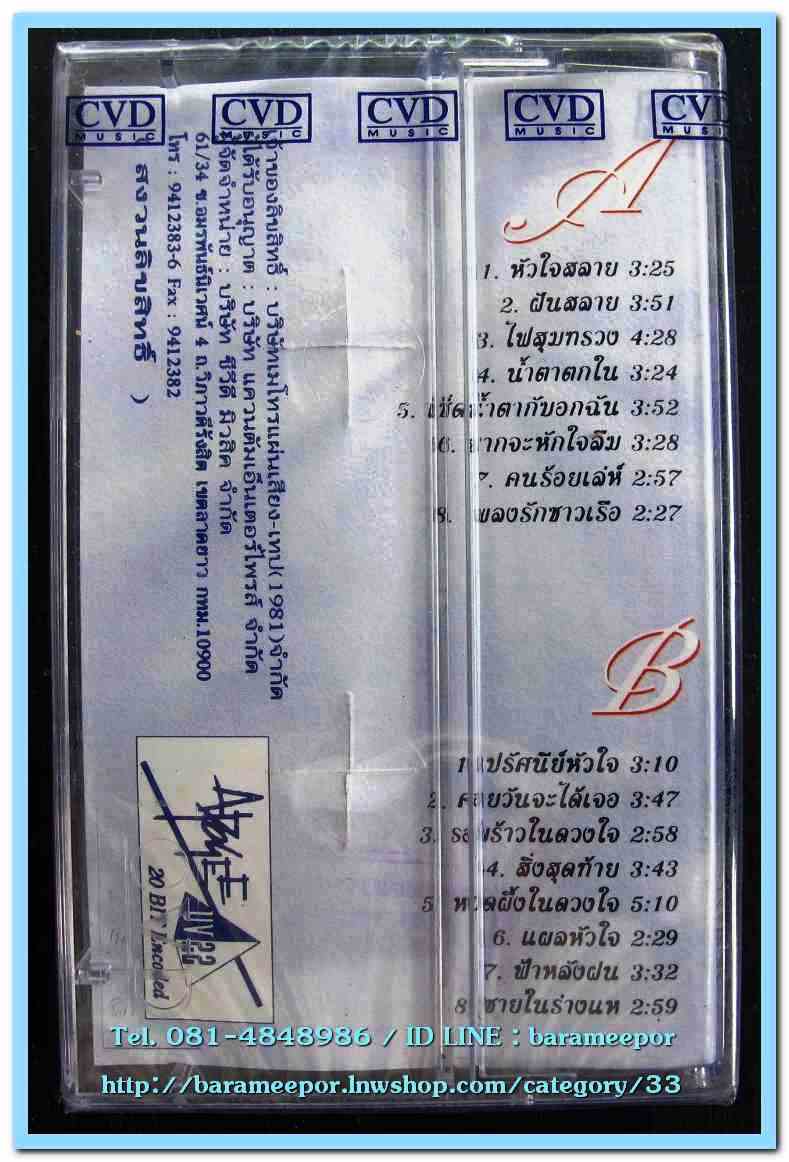 CVD MUSIC CVD MUSIC CVD MUSIC CVD MUSIC CVD
A
1. หัวใจสลาย 3:25
2. ฝันสลาย 3:51
3. ไฟสุมทรวง 4:28
4. น้ำตาตกใน 3:24
5. เช็ดน้ำตากับอกฉัน 3:52
6. ยากจะหักใจลืม 3:28
7. คนร้อยเล่ห์ 2:57
8. เพลงรักชาวเรือ 2:27
B
1. ปรัศนีย์หัวใจ 3:10
2. คอยวันจะได้เจอ 3:47
3. รอยร้าวในดวงใจ 2:58
4. สิ่งสุดท้าย 3:43
5. หยดผึ้งในดวงใจ 5:10
6. แผลหัวใจ 2:29
7. ฟ้าหลังฝน 3:32
8. ชายในร่างแห 2:59
เจ้าของลิขสิทธิ์ : บริษัทเมโทรแผ่นเสียง-เทป(1981)จำกัด
ผู้ได้รับอนุญาต : บริษัท แควนตัมเอ็นเตอร์ไพรส์ จำกัด
ผู้จัดจำหน่าย : บริษัท ซีวีดี มิวสิค จำกัด
61/34 ซ.อมรพันธ์นิเวศน์ 4 ถ.วิภาวดีรังสิต เขตลาดยาว กทม.10900
โทร : 9412383-6 Fax : 9412382
( สงวนลิขสิทธิ์ )
UV22
20 BIT Encoded
Tel. 081-4848986 / ID LINE : barameepor
http://barameepor.lnwshop.com/category/33